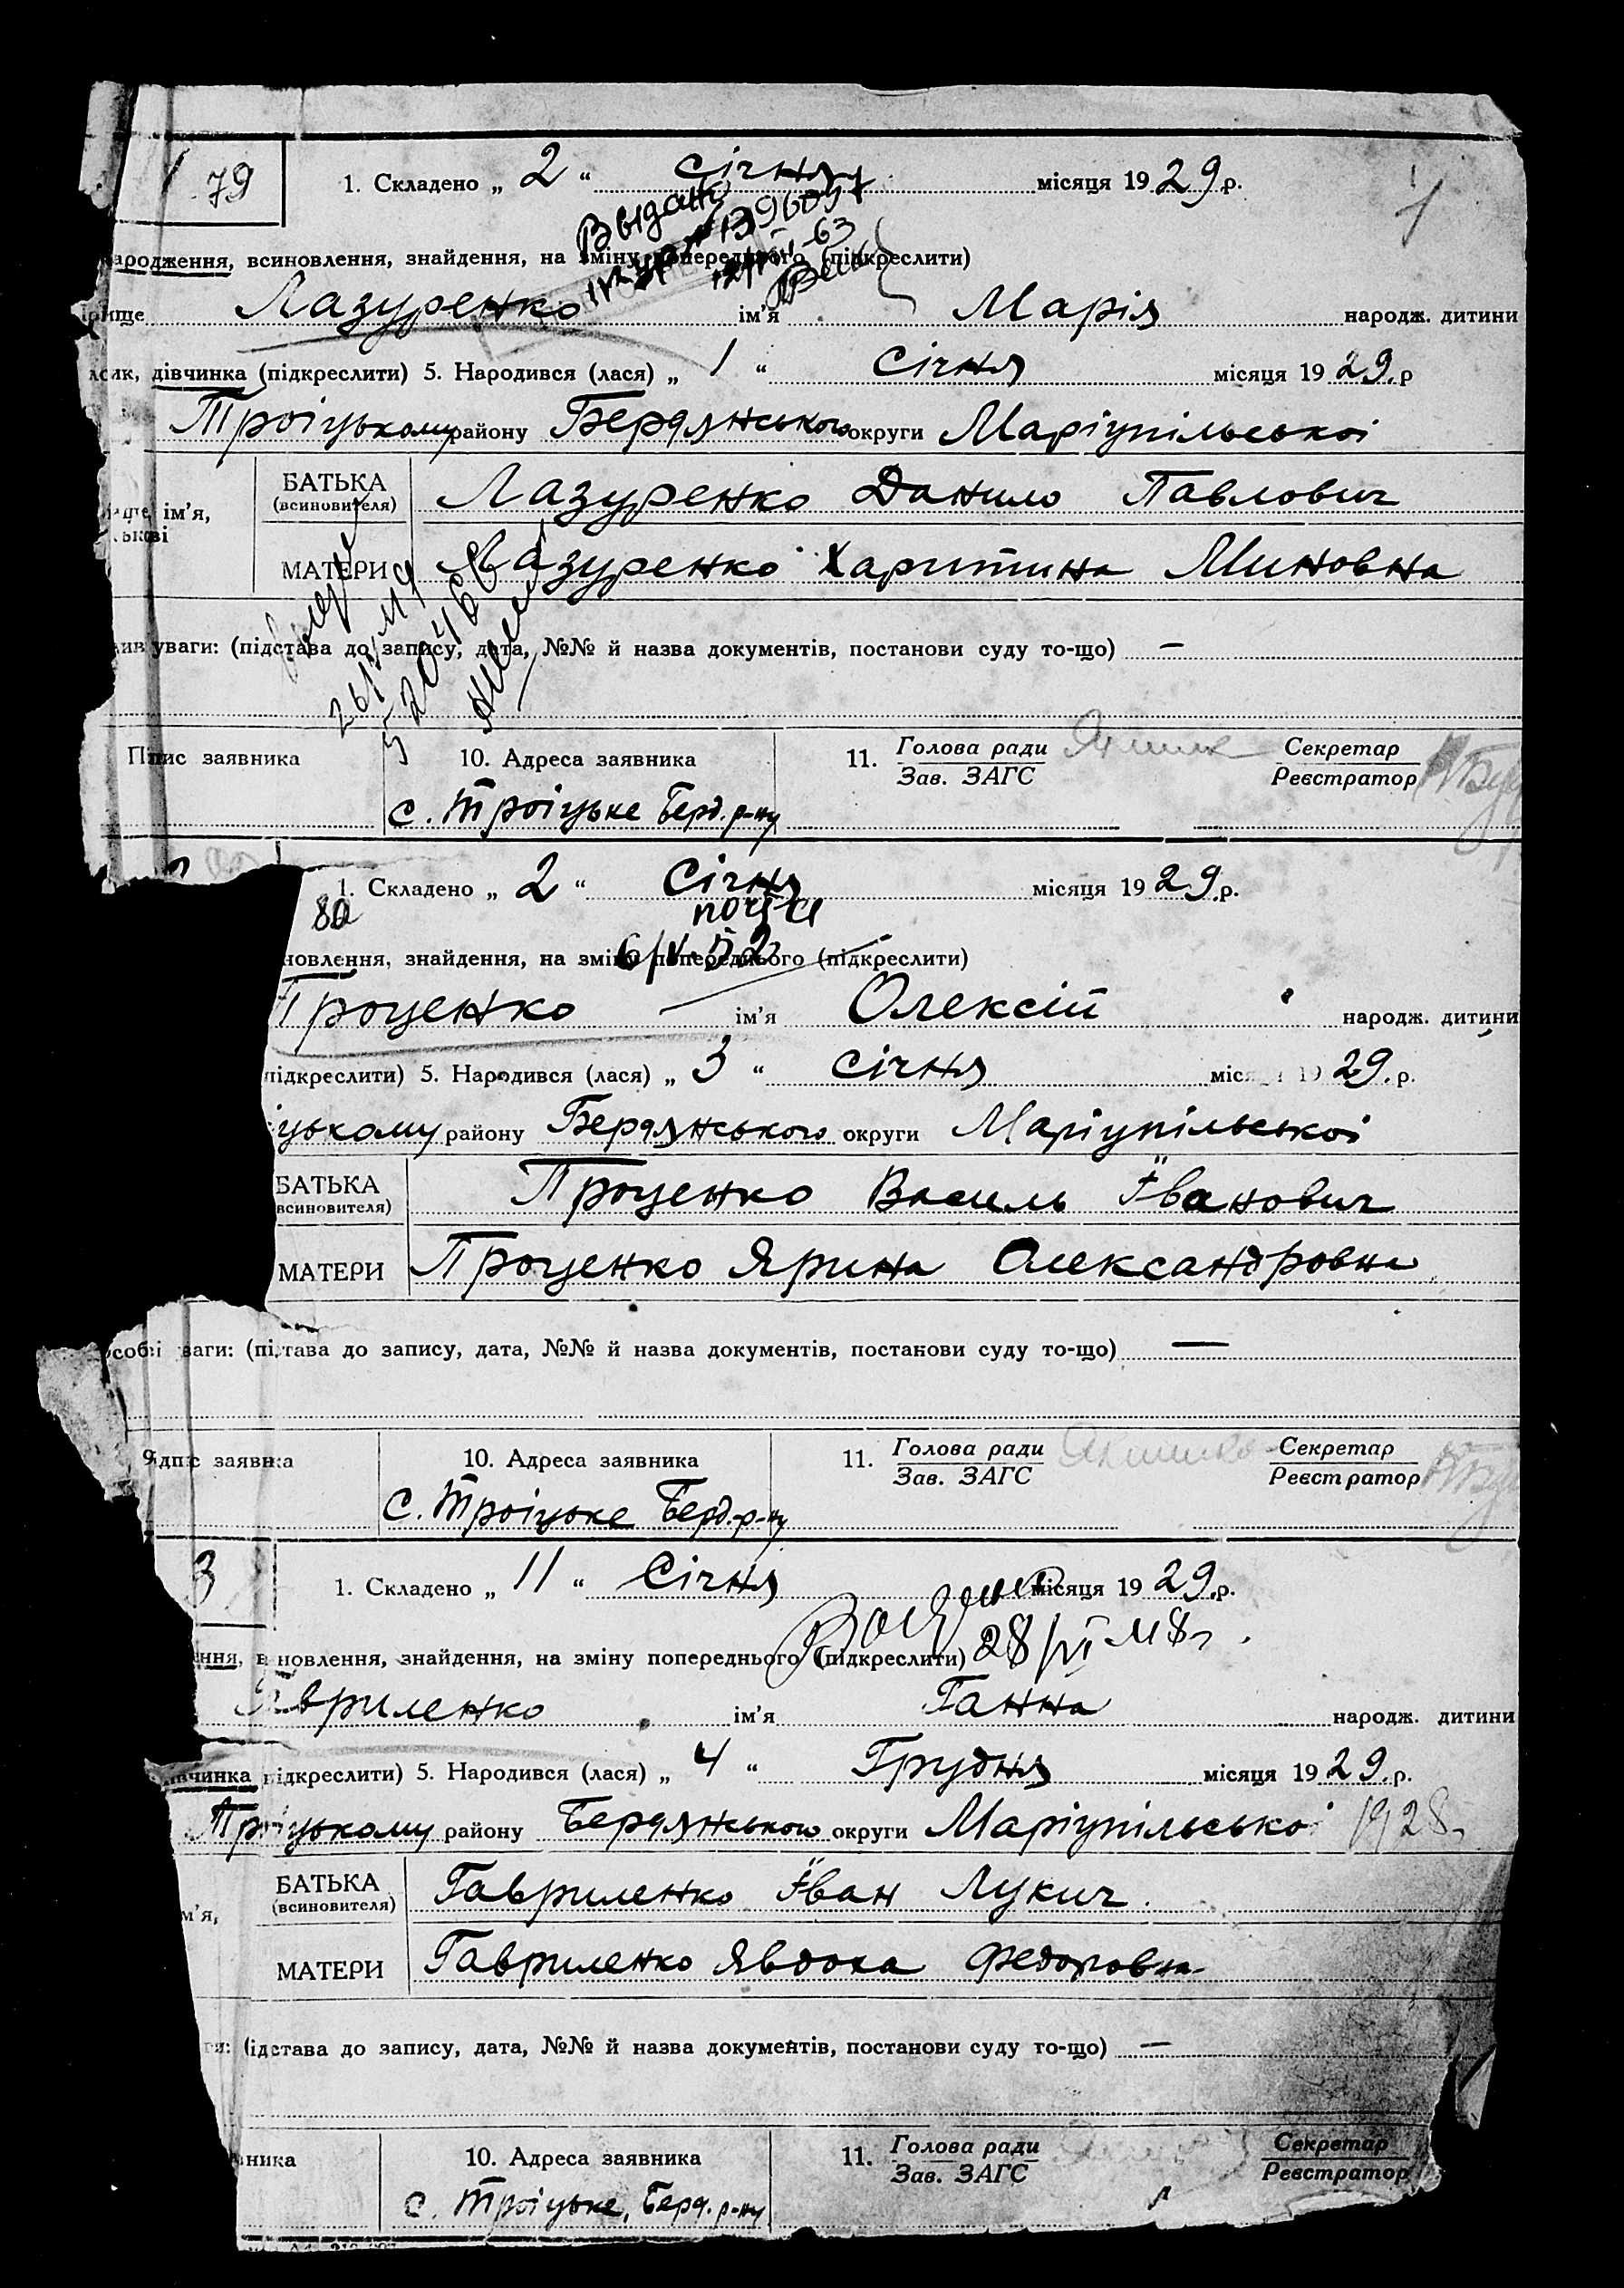 79
1. Складено „ 2 “ Січня місяця 1929 р.
1
Видано
ародження, всиновлення, знайдення, на зміну попереднього (підкреслити)
Лазуренко ім’я Марія народж. дитини
дівчинка (підкреслити) 5. Народився (лася) „ 1 “ Січня місяця 1929. р
Троіцькому району Бердянського округи Маріупільської
ім’я, БАТЬКА (всиновителя) Лазуренко Данило Павлович
МАТЕРИ Лазуренко Харитина Миновна
уваги: (підстава до запису, дата, №№ й назва документів, постанови суду то-що) —
Підпис заявника 10. Адреса заявника 11. Голова ради Секретар
Зав. ЗАГС Реєстратор
с. Троіцьке Берд. р-ну
80
1. Складено „ 2 “ Січня місяця 1929. р.
6/V-52
новлення, знайдення, на зміну попереднього (підкреслити)
Проценко ім’я Олексій народж. дитини
підкреслити) 5. Народився (лася) „ 3 “ Січня місяця 1929. р.
цькому району Бердянського округи Маріупільської
БАТЬКА (всиновителя) Проценко Василь Іванович
МАТЕРИ Проценко Ярина Олександровна
особві ваги: (підстава до запису, дата, №№ й назва документів, постанови суду то-що) —
Підпис заявника 10. Адреса заявника 11. Голова ради Секретар
Зав. ЗАГС Реєстратор
С. Троіцьке Берд. р-ну
3
1. Складено „ 11 “ Січня місяця 1929. р.
28/VI
ння, в новлення, знайдення, на зміну попереднього (підкреслити)
Гавриленко ім’я Ганна народж. дитини
івчинка підкреслити) 5. Народився (лася) „ 4 “ Грудня місяця 1929. р.
Троіцькому району Бердянського округи Маріупільської 1928
м’я, БАТЬКА (всиновителя) Гавриленко Іван Лукич.
МАТЕРИ Гавриленко Явдоха Федоровна
(ідстава до запису, дата, №№ й назва документів, постанови суду то-що) —
вника 10. Адреса заявника 11. Голова ради Секретар
Зав. ЗАГС Реєстратор
с. Троіцьке, Берд. р-ну